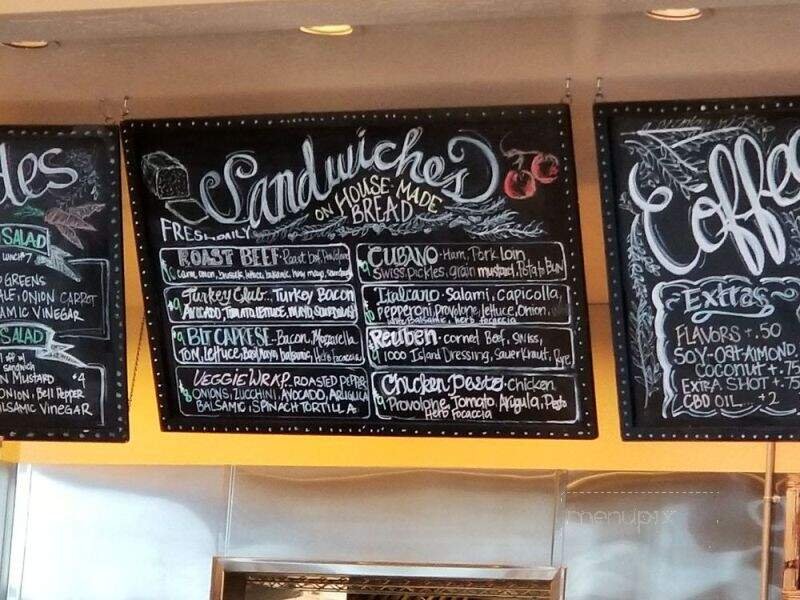 des
SALAD
LUNCH
GREENS
ONION CARROT
AMIC VINEGAR
SALAD
off w/
sandwich
N MUSTARD $4
ONION, Bell Pepper
BALSAMIC VINEGAR
Sandwiches
ON HOUSE-MADE
BREAD
FRESH DAILY
ROAST BEEF - Roast beef, Provolone
Turkey Club - Turkey Bacon
AVOCADO, Tomato, lettuce, mayo, sourdough
$9 BLT CAPRESE - Bacon, Mozzarella
TOM, Lettuce, Basil Mayo, balsamic, Herb Focaccia
VEGGIE WRAP - ROASTED PEPPER
$8 ONIONS, ZUCCHINI, AVOCADO, ARUGULA
BALSAMIC, SPINACH TORTILLA
$9 CUBANO - Ham, Pork Loin
Swiss, pickles, grain mustard, Potato Bun
Italiano - Salami, Capicolla,
pepperoni, provolone, lettuce, Onion,
Balsamic, herb focaccia
Reuben - corned Beef, Swiss,
1000 Island Dressing, Sauerkraut, Rye
Chicken Pesto - chicken
$9 Provolone, Tomato, Arugula, Pesto
Herb Focaccia
Coffee
Extras
FLAVORS +.50
SOY-OAT-ALMOND
Coconut +.75
EXTRA SHOT +.75
CBD OIL... +2
menupix